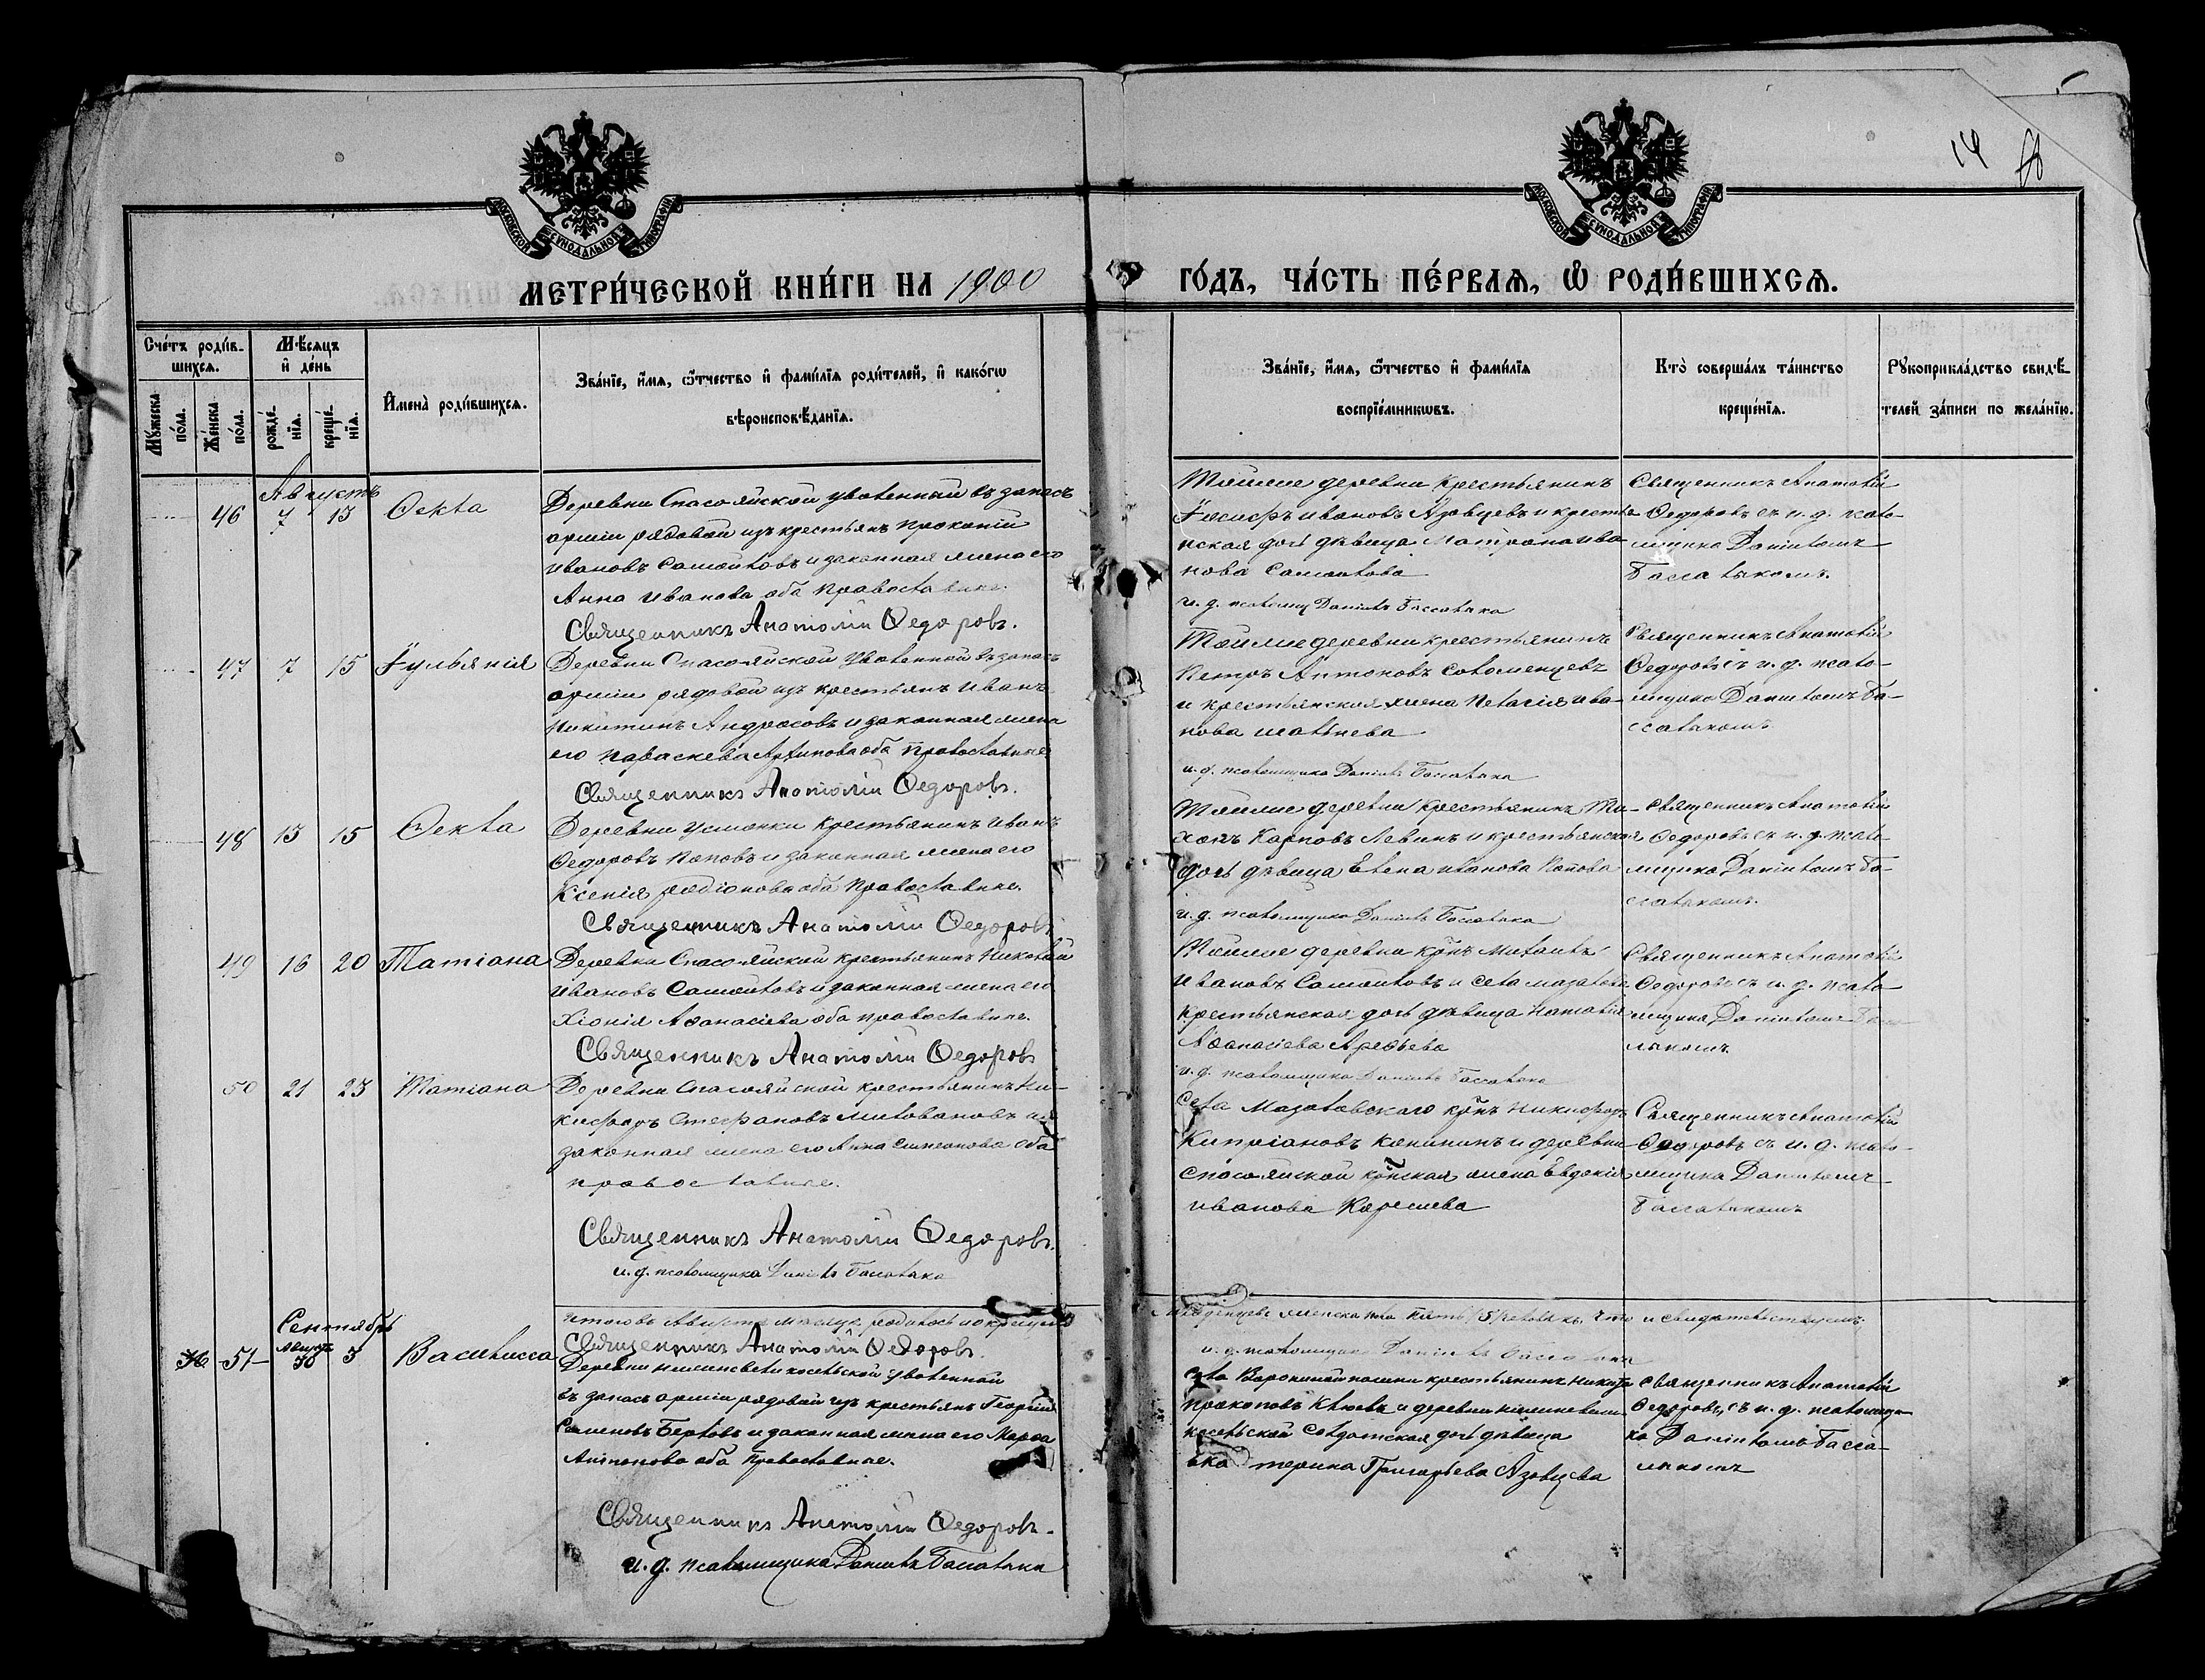 14
МОСКОВСКОЙ СѴНОДАЛЬНОЙ ТИПОГРАФІИ
МОСКОВСКОЙ СѴНОДАЛЬНОЙ ТИПОГРАФІИ
МЕТРИ́ЧЕСКОЙ КНИ́ГИ НА 1900 ГО́ДЪ, ЧА́СТЬ ПЕ́РВАѦ, Ѡ РОДИ́ВШИХСѦ.
Сче́тъ роди́в-
шихсѧ.
Мꙋ́жеска по́ла.
Же́нска по́ла.
Мѣ́сѧцъ
и҆ де́нь
рожде́-нїѧ.
креще́-нїѧ.
И҆мена̀ роди́вшихсѧ.
Зва́нїе, и҆́мѧ, ѻ҆́тчество и҆ фами́лїѧ роди́телей, и҆ како́гѡ
вѣроисповѣ́данїѧ.
Зва́нїе, и҆́мѧ, ѻ҆́тчество и҆ фами́лїѧ
воспрїе́мникѡвъ.
Кто̀ соверша́лъ та́инство
креще́нїѧ.
Рꙋкоприкла́дство свидѣ́-
телей за́писи по жела́нїю.
Августъ
46 7 13 Ѳекла
Деревни Спасояйской уволенный въ запасъ
арміи рядовой изъ крестьянъ Прокопій
Ивановъ Самойловъ и законная жена его
Анна Иванова оба православные.
Священникъ Анатолій Ѳедоровъ.
Тойже деревни крестьянинъ
Іосифъ Ивановъ Азовцевъ и крестья-
нская дочь дѣвица Матрона Ива
нова Самойлова
и. д. псаломщ Даніилъ Бассалыка
Священникъ Анатолій
Ѳедоровъ съ и. д. псало-
мщика Даніиломъ
Бассалыкомъ.
47 7 15 Іульянія
Деревни Спасояйской уволенной въ запасъ
арміи рядовой изъ крестьянъ Иванъ
Никитинъ Андросовъ и законная жена
его Параскева оба православные
Священникъ Анатолій Ѳедоровъ.
Тойже деревни крестьянинъ
Петръ Антоновъ Соломенцевъ
и крестьянская жена Пелагія Ива-
нова
и. д. псаломщика Даніилъ Бассалыка
Священникъ Анатолій
Ѳедоровъ съ и. д. псало-
мщика Даніиломъ Ба-
ссалыкомъ
48 13 15 Ѳекла
Деревни Усманки крестьянинъ Иванъ
Ѳедоровъ Поповъ и законная жена его
Ксенія Родіонова оба православные.
Священникъ Анатолій Ѳедоровъ
Тойже деревни крестьянинъ Ти-
хонъ Карповъ Левинъ и крестьянская
дочь дѣвица Елена Иванова Попова
и. д. псаломщика Даніилъ Бассалыка
Священникъ Анатолій
Ѳедоровъ съ и. д. псало-
мщика Даніиломъ Ба-
ссалыкомъ.
49 16 20 Татіана
Деревни Спасояйской крестьянинъ Николай
Ивановъ Самойловъ и законная жена его
Хіонія Аѳанасіева оба православные.
Священникъ Анатолій Ѳедоровъ
Тойже деревни крнъ Михаилъ
Ивановъ Самойловъ и села Мазалово
крестьянская дочь дѣвица Наталія
Аѳанасіева Арефьева
и. д. псаломщика Даніилъ Бассалыка
Священникъ Анатолій
Ѳедоровъ съ и. д. псало
мщика Даніиломъ Басса
лыкомъ
50 21 23 Татіана
Деревни Спасояйской крестьянинъ Ни-
кифоръ Стефановъ Миловановъ и
законная жена его Анна Симеонова оба
православные.
Священникъ Анатолій Ѳедоровъ.
и. д. псаломщика Даніилъ Бассалыка
Села Мазаловскаго крнъ Никифоръ
Кипріановъ и деревни
Спасояйской крнская жена Евдокія
Иванова
Священникъ Анатолій
Ѳедоровъ съ и. д. псало-
мщика Даніиломъ
Бассалыкомъ
Итого въ Августѣ мѣсяцѣ родилось и окрещено
младенцевъ женска пола пять /5/ человѣкъ, что и свидѣтельствуемъ:
Священникъ Анатолій Ѳедоровъ.
и. д. псаломщика Даніилъ Бассалыка
Сентябрь
51 Август 30 3 Василисса
уволенной
въ запасъ арміи рядовой изъ крестьянъ Георгій
Семеновъ и законная жена его Марѳа
Антонова оба православные.
Священникъ Анатолій Ѳедоровъ.
и. д. псаломщика Даніилъ Бассалыка
Села Ворониной пашни крестьянинъ Никита
Прокоповъ и деревни
солдатская дочь дѣвица
Ека терина Григорьева Азовцева
Священникъ Анатолій
Ѳедоровъ, съ и. д. псаломщи-
ка Даніиломъ Басса-
лыкомъ